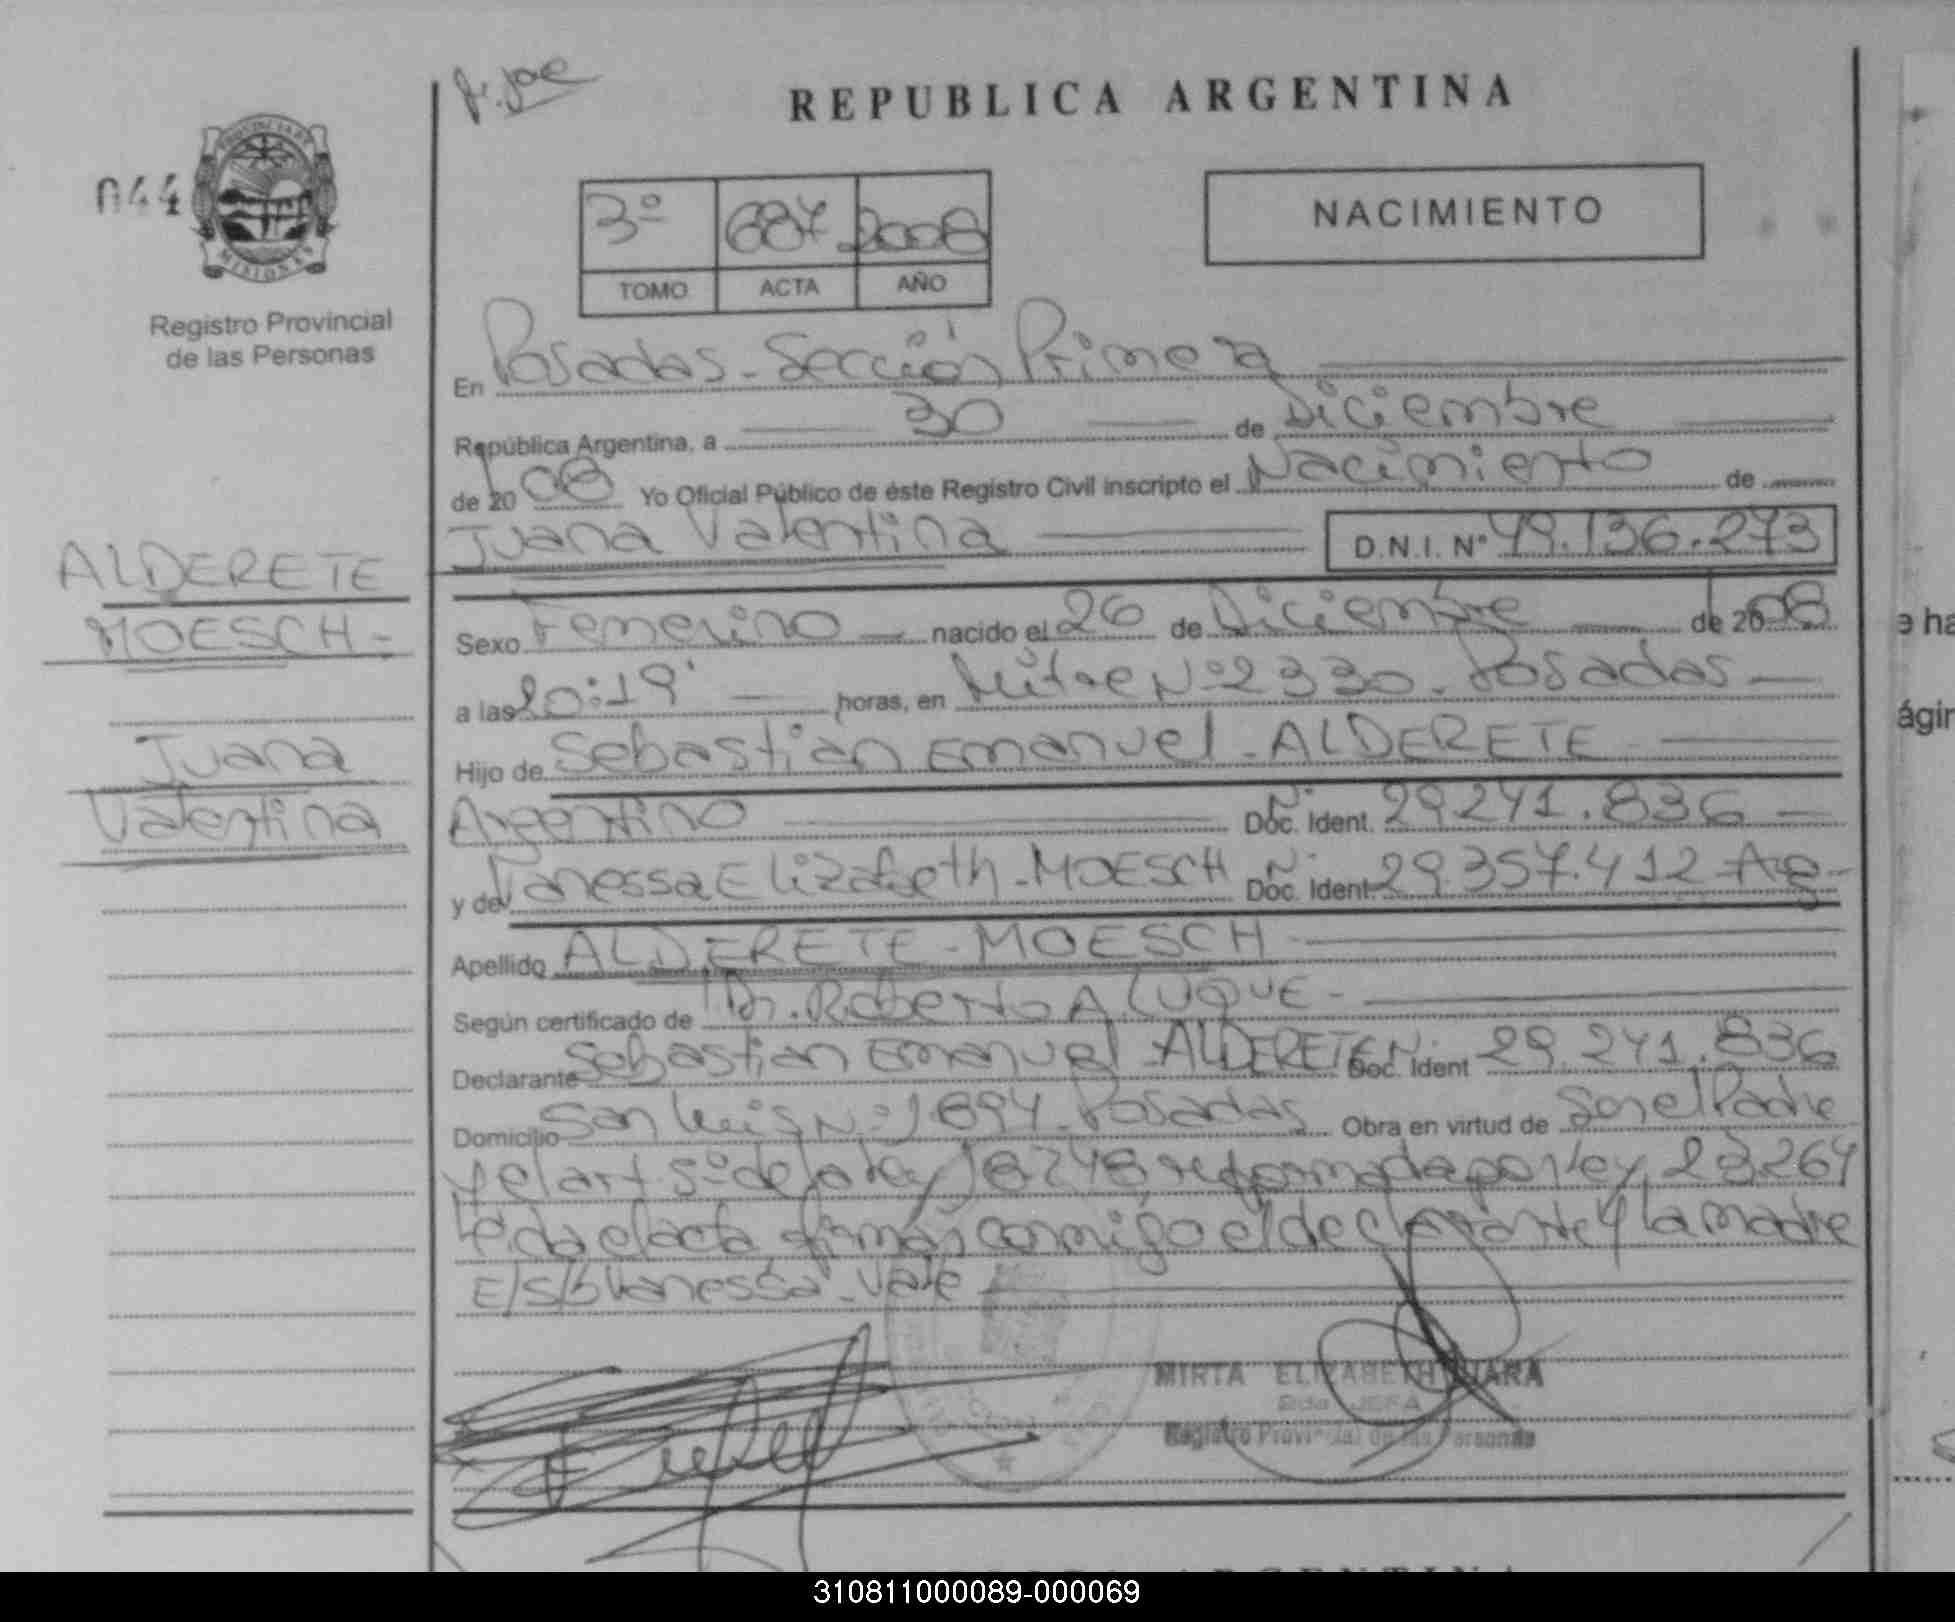 Dr. Jae
REPUBLICA ARGENTINA
044
PROVINCIA DE MISIONES
3º 687 2008
TOMO ACTA AÑO
NACIMIENTO
Registro Provincial
de las Personas
En Posadas - Sección Primera
República Argentina, a 30 de Diciembre
de 2008 Yo Oficial Público de éste Registro Civil inscripto el Nacimiento de
Juana Valentina D.N.I. Nº 49.136.273
ALDERETE
MOESCH -
Juana
Valentina
Sexo Femenino nacido el 26 de Diciembre de 2008
a las 20:19' horas, en Mitre Nº 2330 - Posadas
Hijo de Sebastian Emanuel - ALDERETE
Argentino Doc. Ident. Nº 29.241.836
y de Vanessa Elizabeth - MOESCH Doc. Ident. Nº 29.357.412 - Arg -
Apellido ALDERETE - MOESCH
Según certificado de Dr. Roberto A. LUQUE -
Declarante Sebastian Emanuel - ALDERETE Doc. Ident Nº 29.241.836
Domicilio San Luis Nº 1894 - Posadas Obra en virtud de Ser el Padre
y el art. 5º de la ley 18248 reformada por ley 23264
Leída el acta firman conmigo el declarante y la madre
E/S/b Vanessa - Vale
MIRTA ELIZABETH
2da JEFA
Registro Provincial de las Personas
e ha
ágin
310811000089-000069